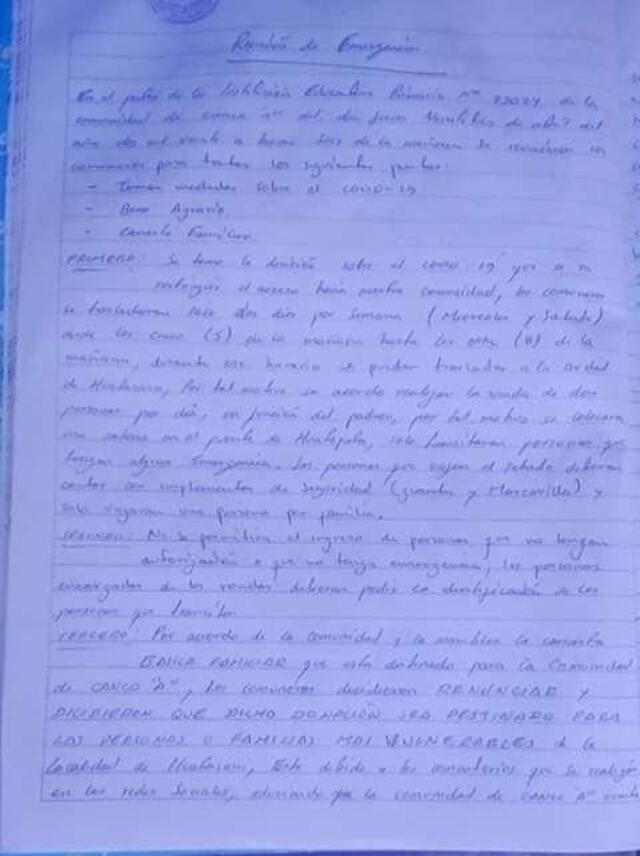 Reunión de Emergencia
En el patio de la Institución Educativa Primaria N° 72024 de la
comunidad de Canco "A" del día jueves del
año dos mil veinte a horas de la mañana se reunieron los
comuneros para tratar los siguientes puntos:
- Toman medidas sobre el COVID-19
- Bono Agrario
- Canasta Familiar
PRIMERO: Se tomo la decisión sobre el COVID-19 que a
restringir el acceso hacia nuestra comunidad, los comuneros
se trasladaran solo dos días por semana (Miercoles y Sabado)
desde las cinco (5) de la mañana hasta las ocho (8) de la
mañana, durante ese horario se podran trasladar a la ciudad
de Por tal motivo se acordo realizar la ronda de dos
personas por día, en función del padron, por tal motivo se colocara
una en el puente de solo transitaran personas que
tengan alguna Emergencia. Las personas que viajen el sabado deberan
contar con implementos de seguridad (guantes y Mascarilla) y
solo viajaran una persona por familia.
SEGUNDO: No se permitira el ingreso de personas que no tengan
autorización o que no tenga emergencia, las personas
encargadas de las rondas deberan pedir la identificación de las
personas que transitan
TERCERO: Por acuerdo de la comunidad y la asamblea la canasta
BASICA FAMILIAR que esta destinado para la Comunidad
de CANCO "A", Los comuneros decidieron RENUNCIAR Y
DICIDIERON QUE DICHA DONACIÓN SEA DESTINADO PARA
LAS PERSONAS O FAMILIAS MAS VULNERABLES de la
Localidad de Este debido a los comentarios que se realizan
en las redes Sociales, que la comunidad de CANCO "A"